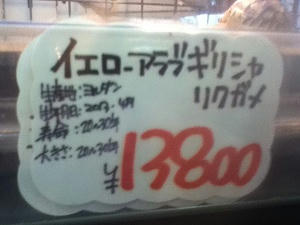 イエローアラブギリシャ
リクガメ
生産地:ヨルダン
生年月日:2013.4月
寿命:20〜30年
大きさ:20〜30cm
¥13800